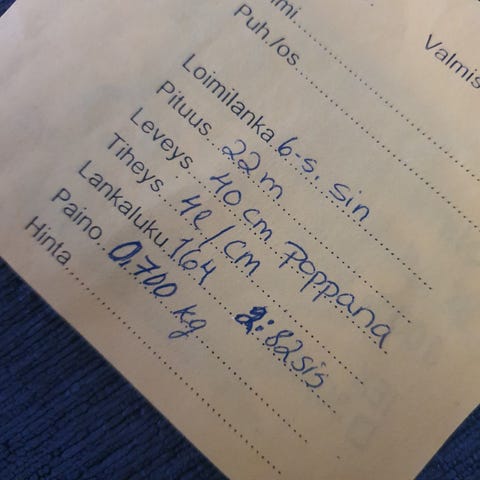 mi
Valmis
Puh./os
Loimilanka 6-s. sin
Pituus 22 m
Leveys 40 cm Poppana
Tiheys 4 l / cm
Lankaluku 164 2:82 sis
Paino 0,700 kg
Hinta